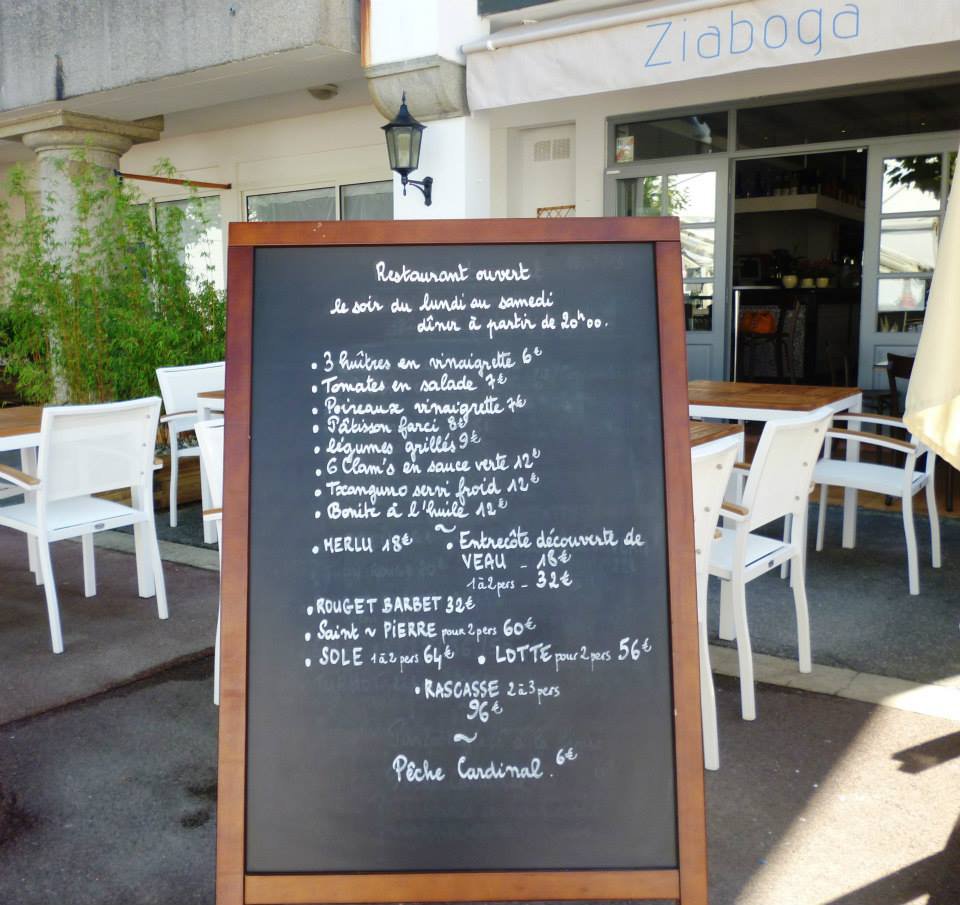 Ziaboga
Restaurant ouvert
le soir du lundi au samedi
dîner à partir de 20h00.
• 3 huîtres en vinaigrette 6€
• Tomates en salade 7€
• Poireaux vinaigrette 7€
• Pâtisson farci 8€
• légumes grillés 9€
• 6 Clam's en sauce verte 12€
• Txanguro servi froid 12€
• Bonite à l'huile 12€
~
• MERLU 18€ • Entrecôte découverte de
VEAU - 18€
1 à 2 pers - 32€
• ROUGET BARBET 32€
• Saint ~ PiERRE pour 2 pers 60€
• SOLE 1 à 2 pers 64€ • LOTTE pour 2 pers 56€
• RASCASSE 2 à 3 pers
96€
~
Pêche Cardinal. 6€